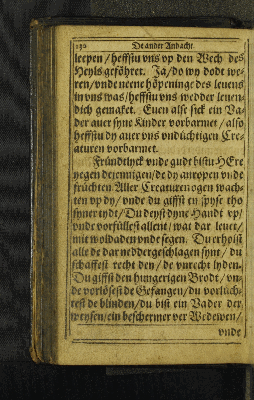 130 De ander Andacht
leepen / heffstu vns vp den Wech des
Heyls geföhret. Ja / do wy dodt we-
ren / vnde neene höpeninge des leuens
in vns was / heffstu vns wedder leuen-
dich gemaket. Euen alse sick ein Va-
der auer syne Kinder vorbarmet / also
heffstu dy auer vns vndüchtigen Cre-
aturen vorbarmet.
Fründtlyck vnde gudt bistu HEre
yegen deyennigen / de dy anropen vnde
früchten Aller Creaturen ogen wach-
ten vp dy / vnde du giffst en spyse tho
syner tydt / Du deyst dyne Handt vp /
vnde vorfüllest allent / wat dar leuet /
mit woldaden vnde segen. Du erholst
alle de dar neddergeschlagen synt / du
schaffest recht den / de vnrecht lyden.
Du giffst den hungerigen Brodt / vn-
de vorlösest de Gefangen / du vorlüch-
test de blinden / du bist ein Vader der
weysen / ein beschermer der Wedewen /
vnde